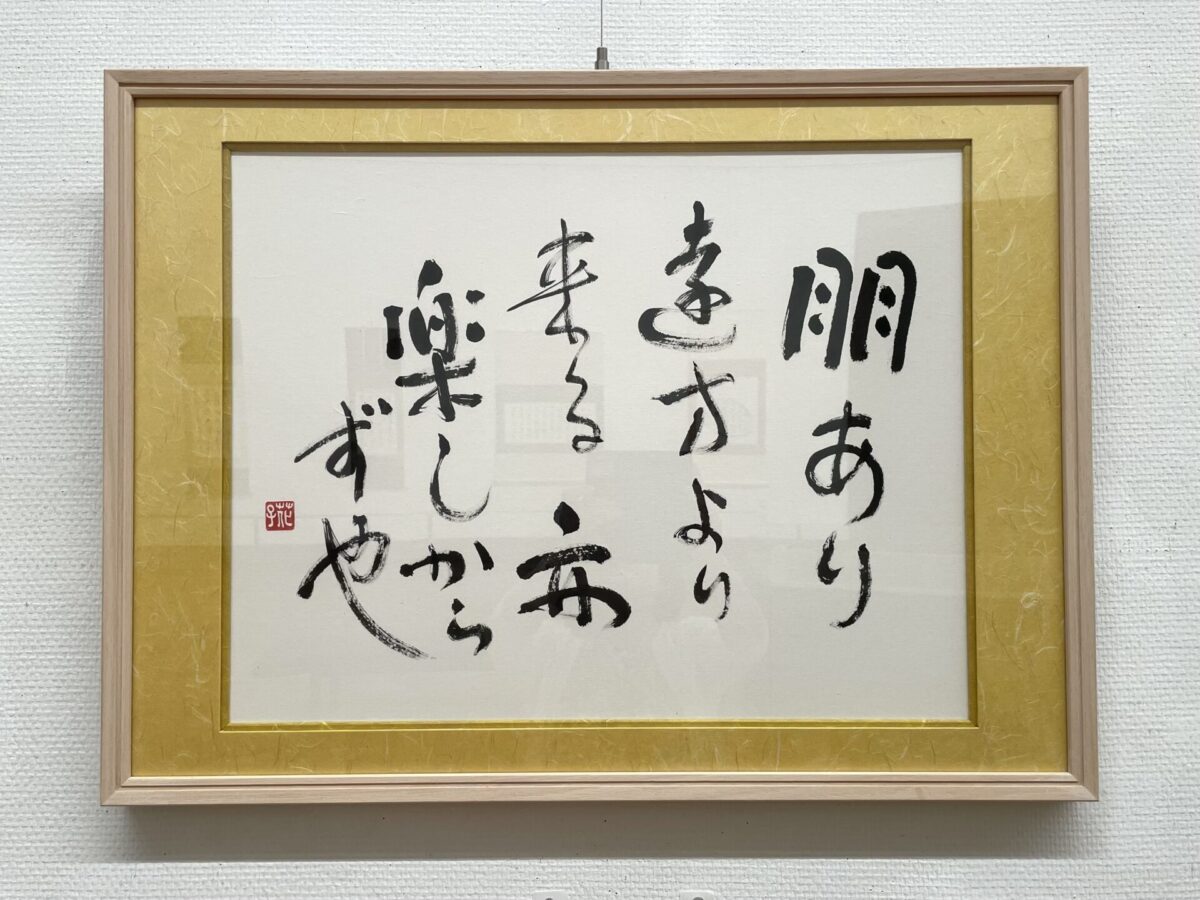 朋あり
遠方より
来る亦
楽しから
ずや
花子